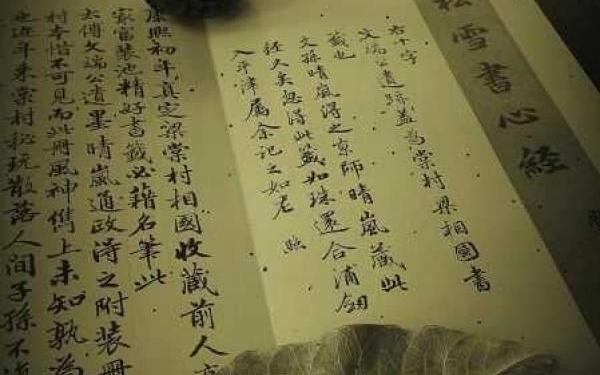 松雪書心經
右十字
文端公遺跡蓋為棠村梁相國書
籤也
文孫晴嵐得之京師晴嵐藏此
往久矣忽得此籤如珠還合浦劒
入平津屬余記之如左 照
康熙初年真定梁棠村相國收藏前人
家富裝池精好書籤必藉名筆此
去傅文端公遺墨晴嵐通政得之附裝冊
村本惜不可見而此冊風神雋上未知孰為
也近年來棠村秘玩散落人間子孫不